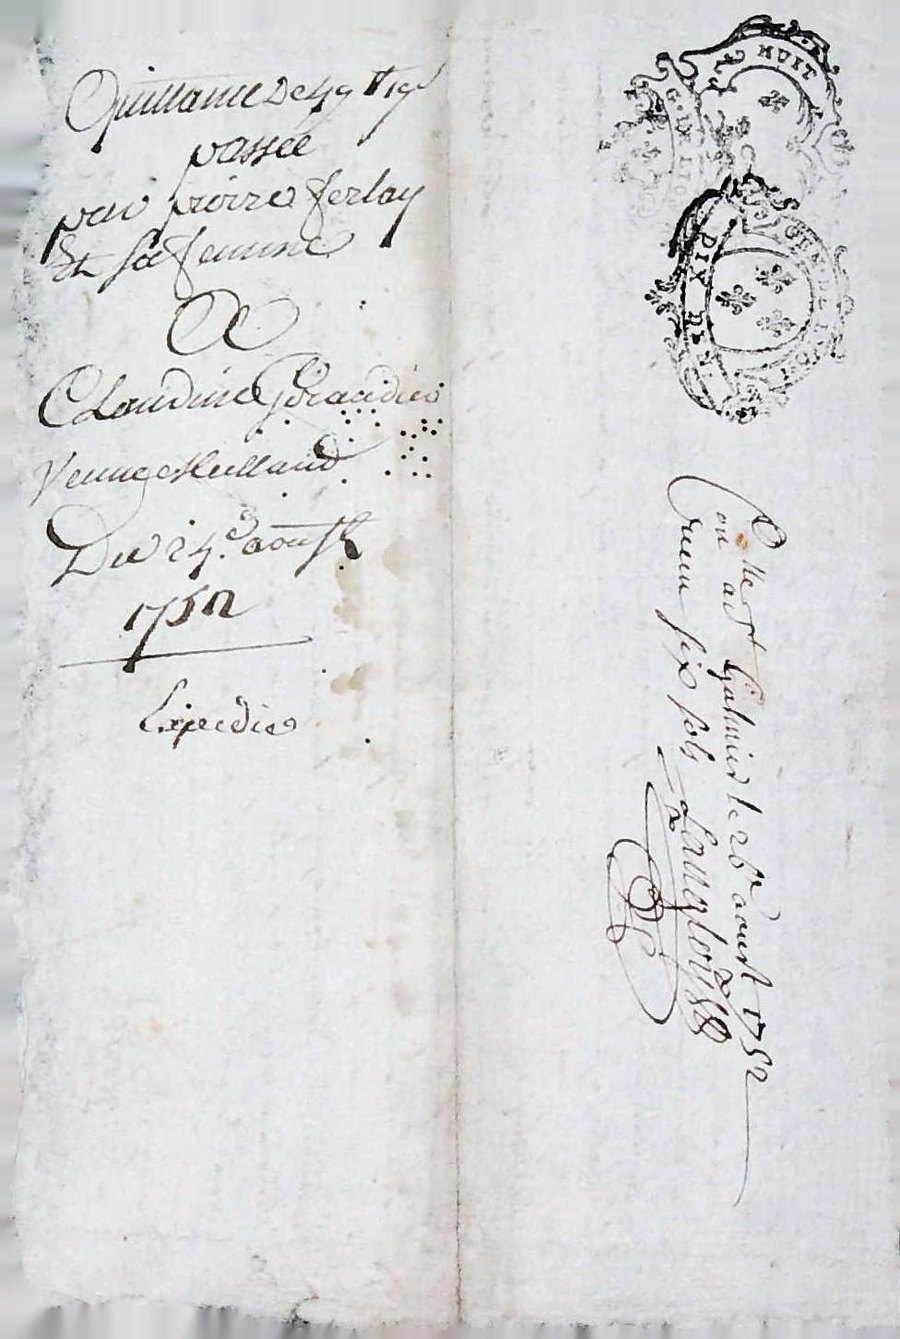 Quittance De 49 ₶ 19 s
passée
par pierre ferlay
Et sa femme
A
Claudine Giraudier
Veuve
Du 24e. aoust
1752
Expedié
HUIT
G. DE LYON
GEN. DE LYON
DIX DE
Con lle a st Galmier le 26e aoust 1752
Reçu six sols Langlois